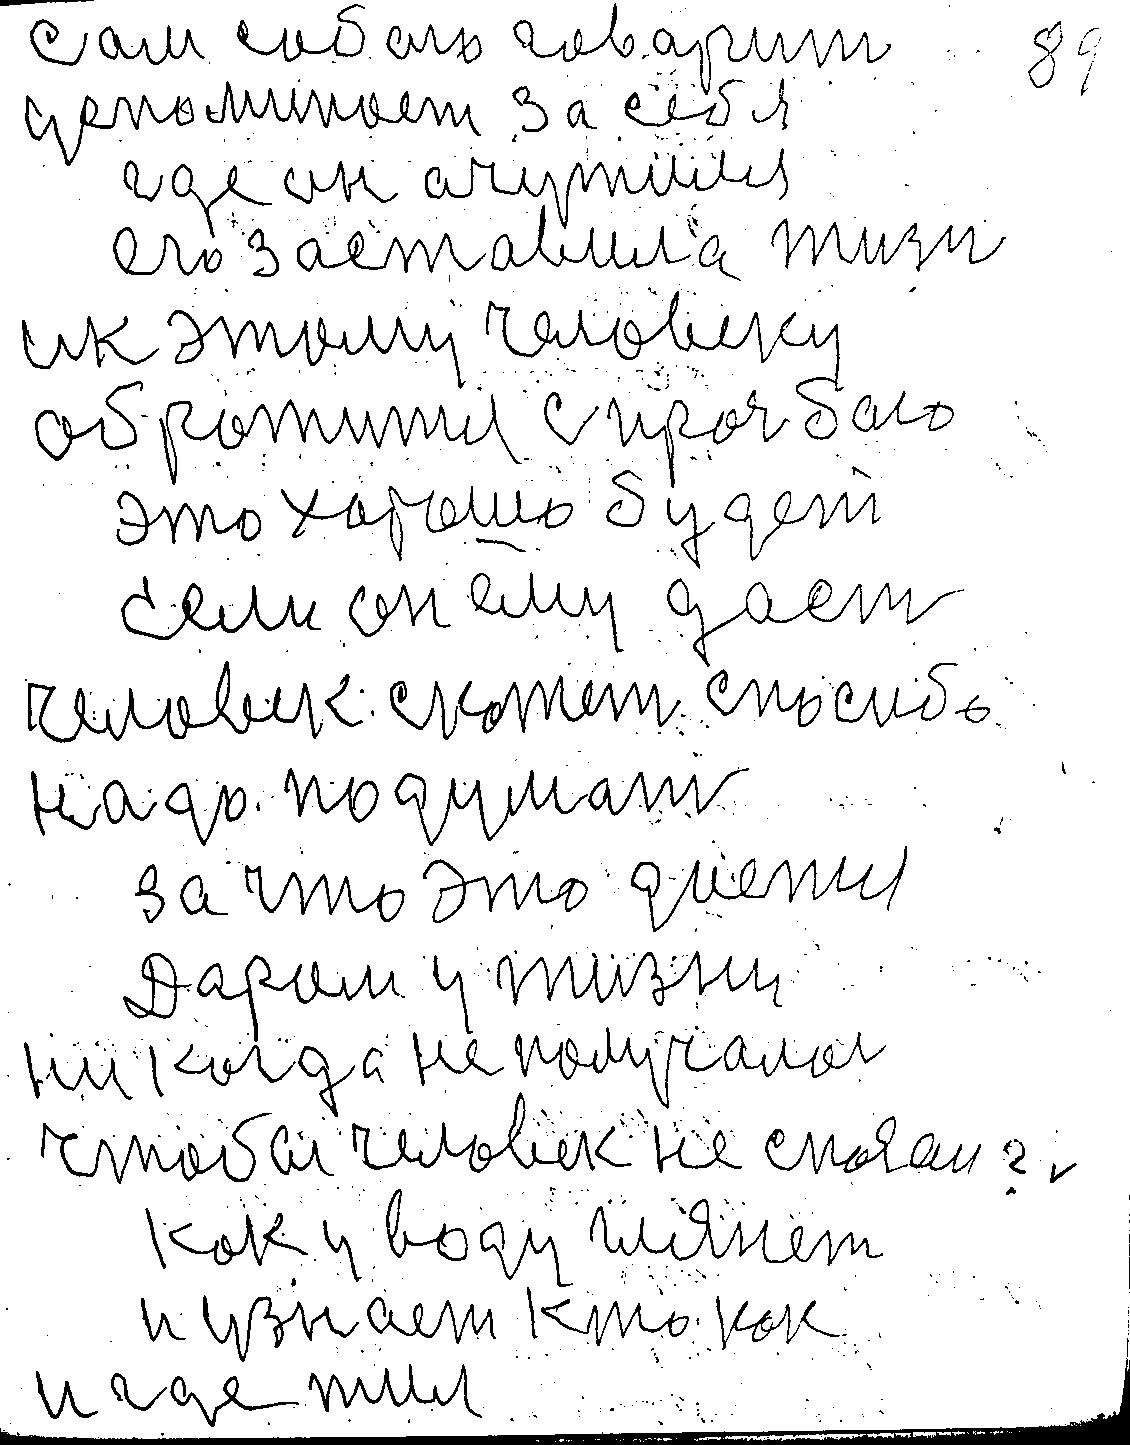 сам собою говарит 89
упоминает за себя
где он очутился
его заставила жизн
ик этому человеку
обротится с прозбою
это хорошо будет
если он ему дает
человек скажет спосибо
надо подумат
за что это
Даром у жизни
никогда не получалос
чтобы человек не спознал?
как у воду глянет
и узнает кто как
и где жил